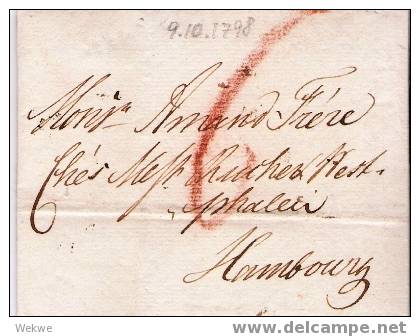 9.10.1798
Monsr Amand Frére
6
Chés Mess. Rucker & West-
phalen
Hambourg
Wekwe
www.delcampe.net